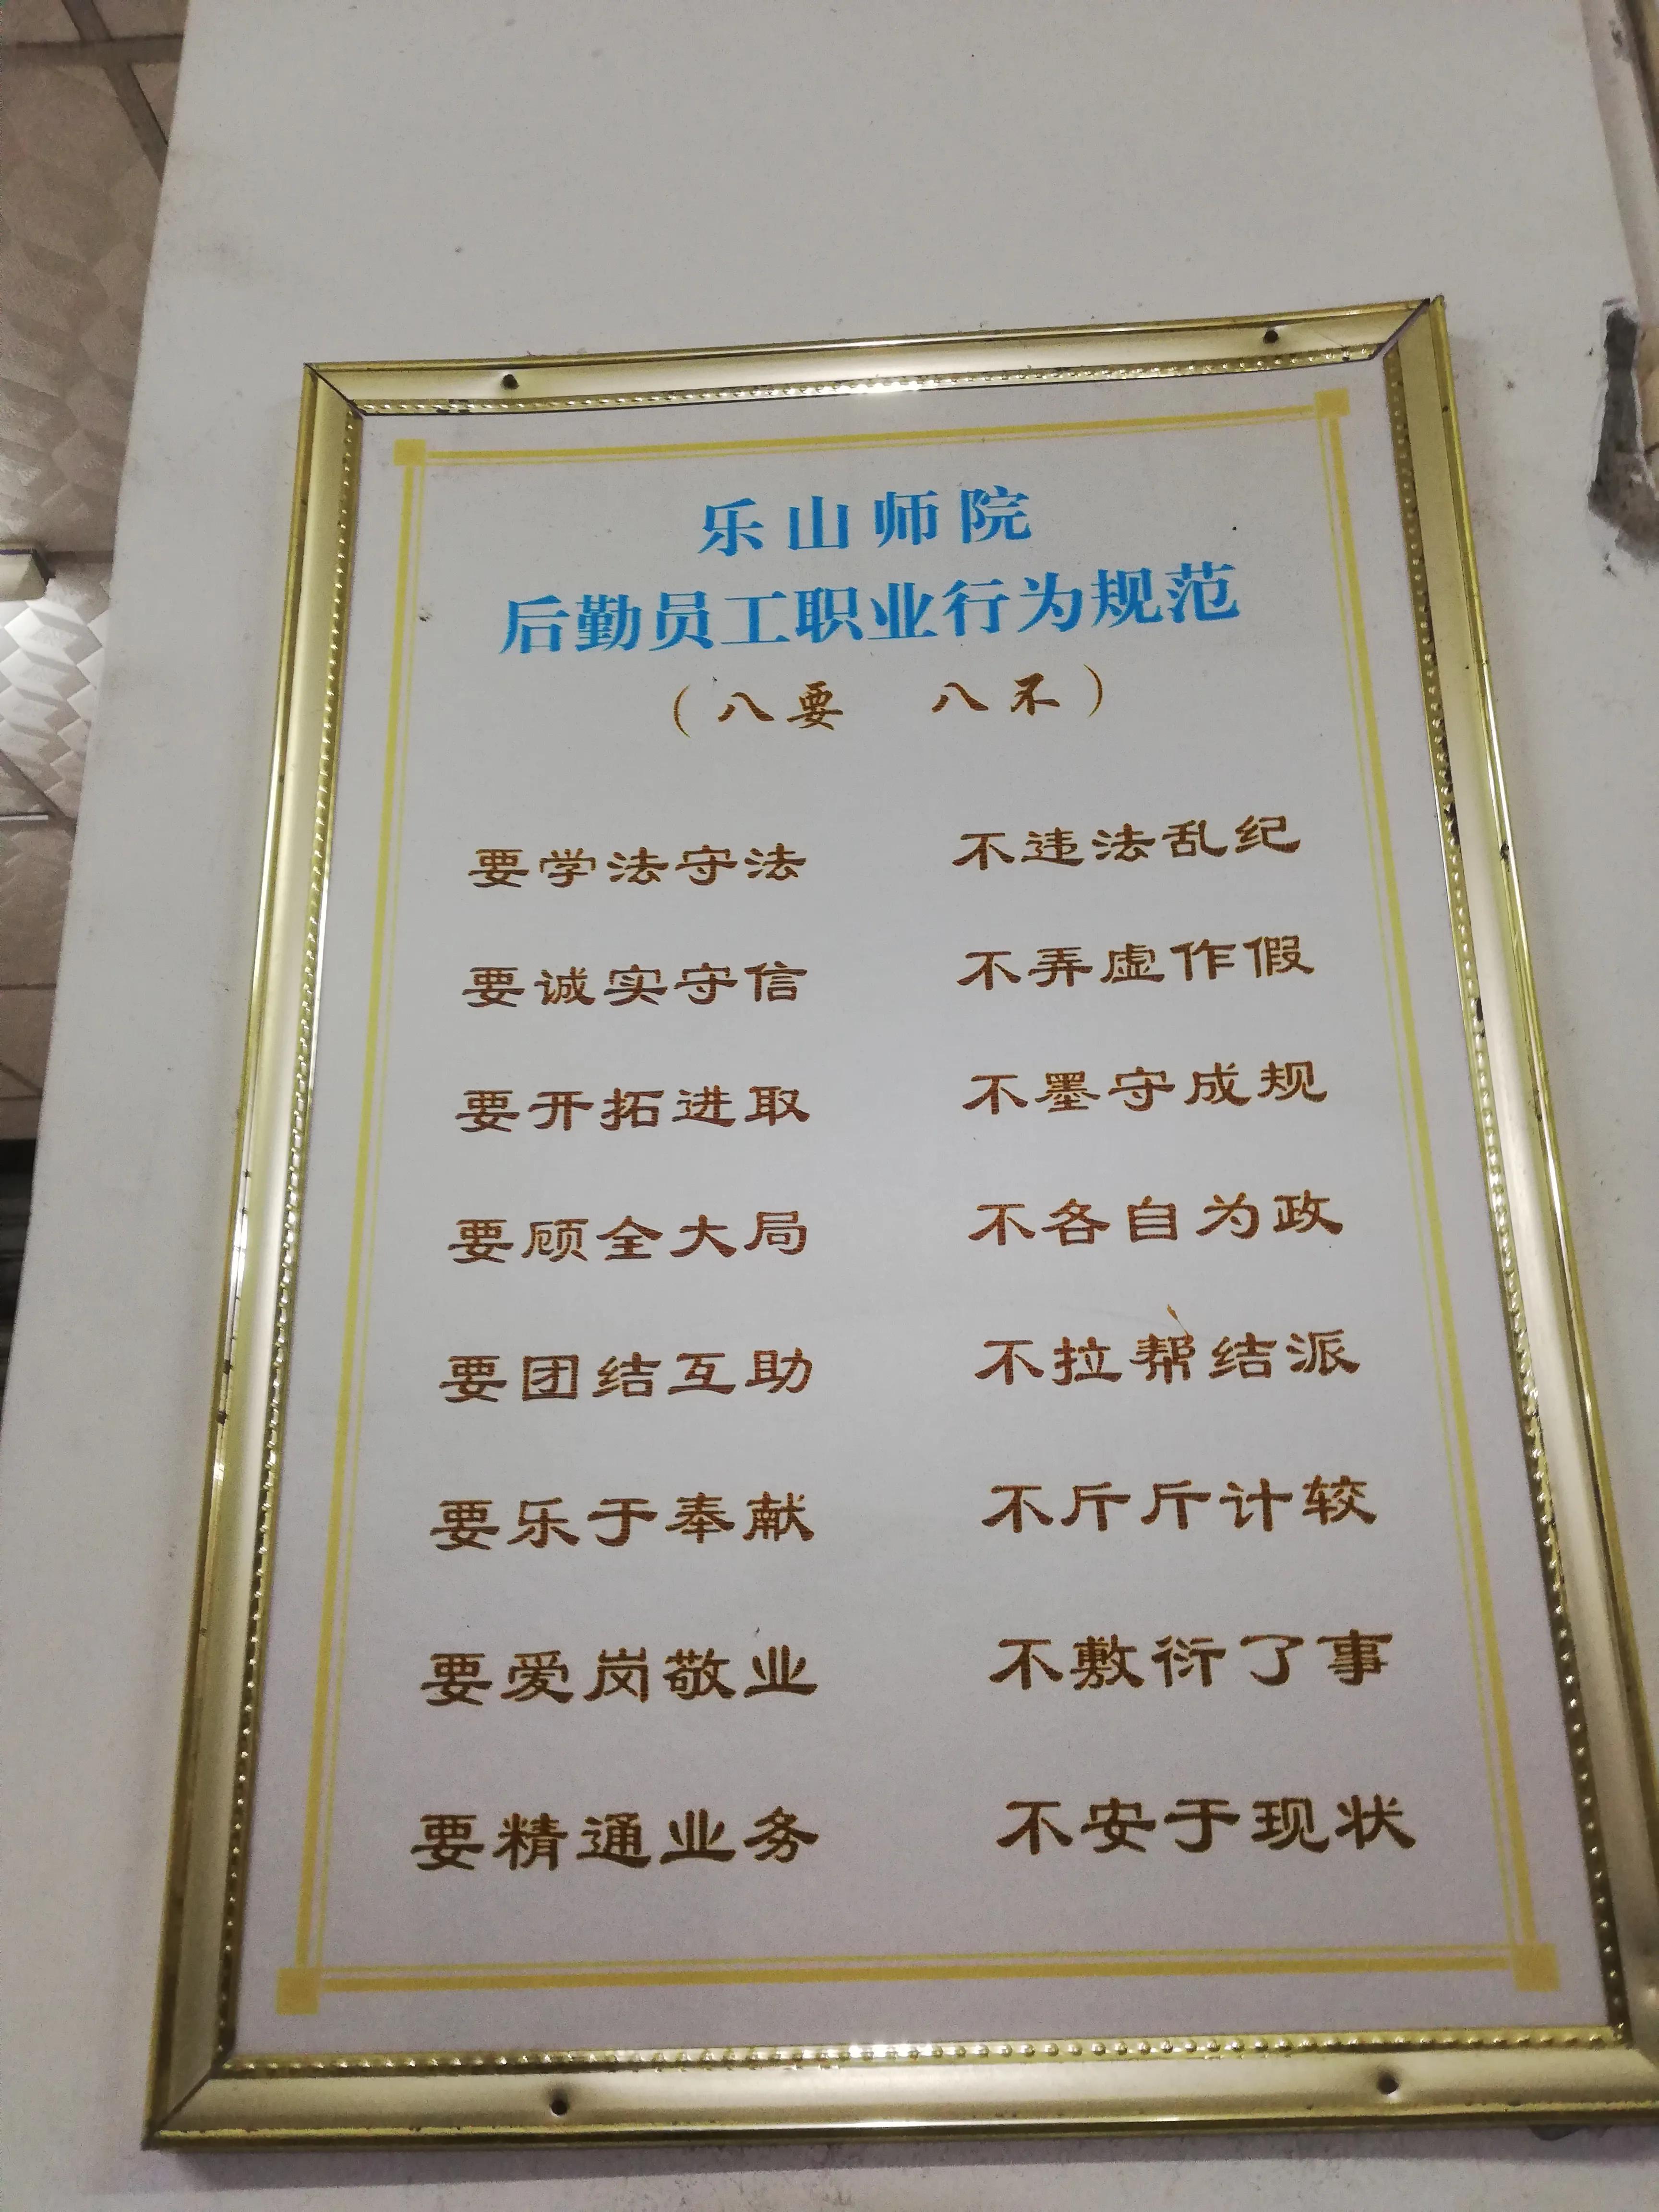 乐山师院
后勤员工职业行为规范
（八要 八不）
要学法守法 不违法乱纪
要诚实守信 不弄虚作假
要开拓进取 不墨守成规
要顾全大局 不各自为政
要团结互助 不拉帮结派
要乐于奉献 不斤斤计较
要爱岗敬业 不敷衍了事
要精通业务 不安于现状